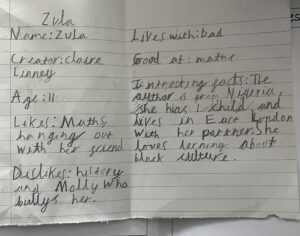 Zula
Name: Zula
Creator: claire
Linney
Age: 11
Likes: Maths
hanging out
with her friend
Dislikes: history
and Molly who
bullys her.
Lives with: Dad
Good at: maths
Intresting facts: The
author is from Nigeria,
she has 1 child and
lives in East London
with her partner. She
loves learning about
black culture.